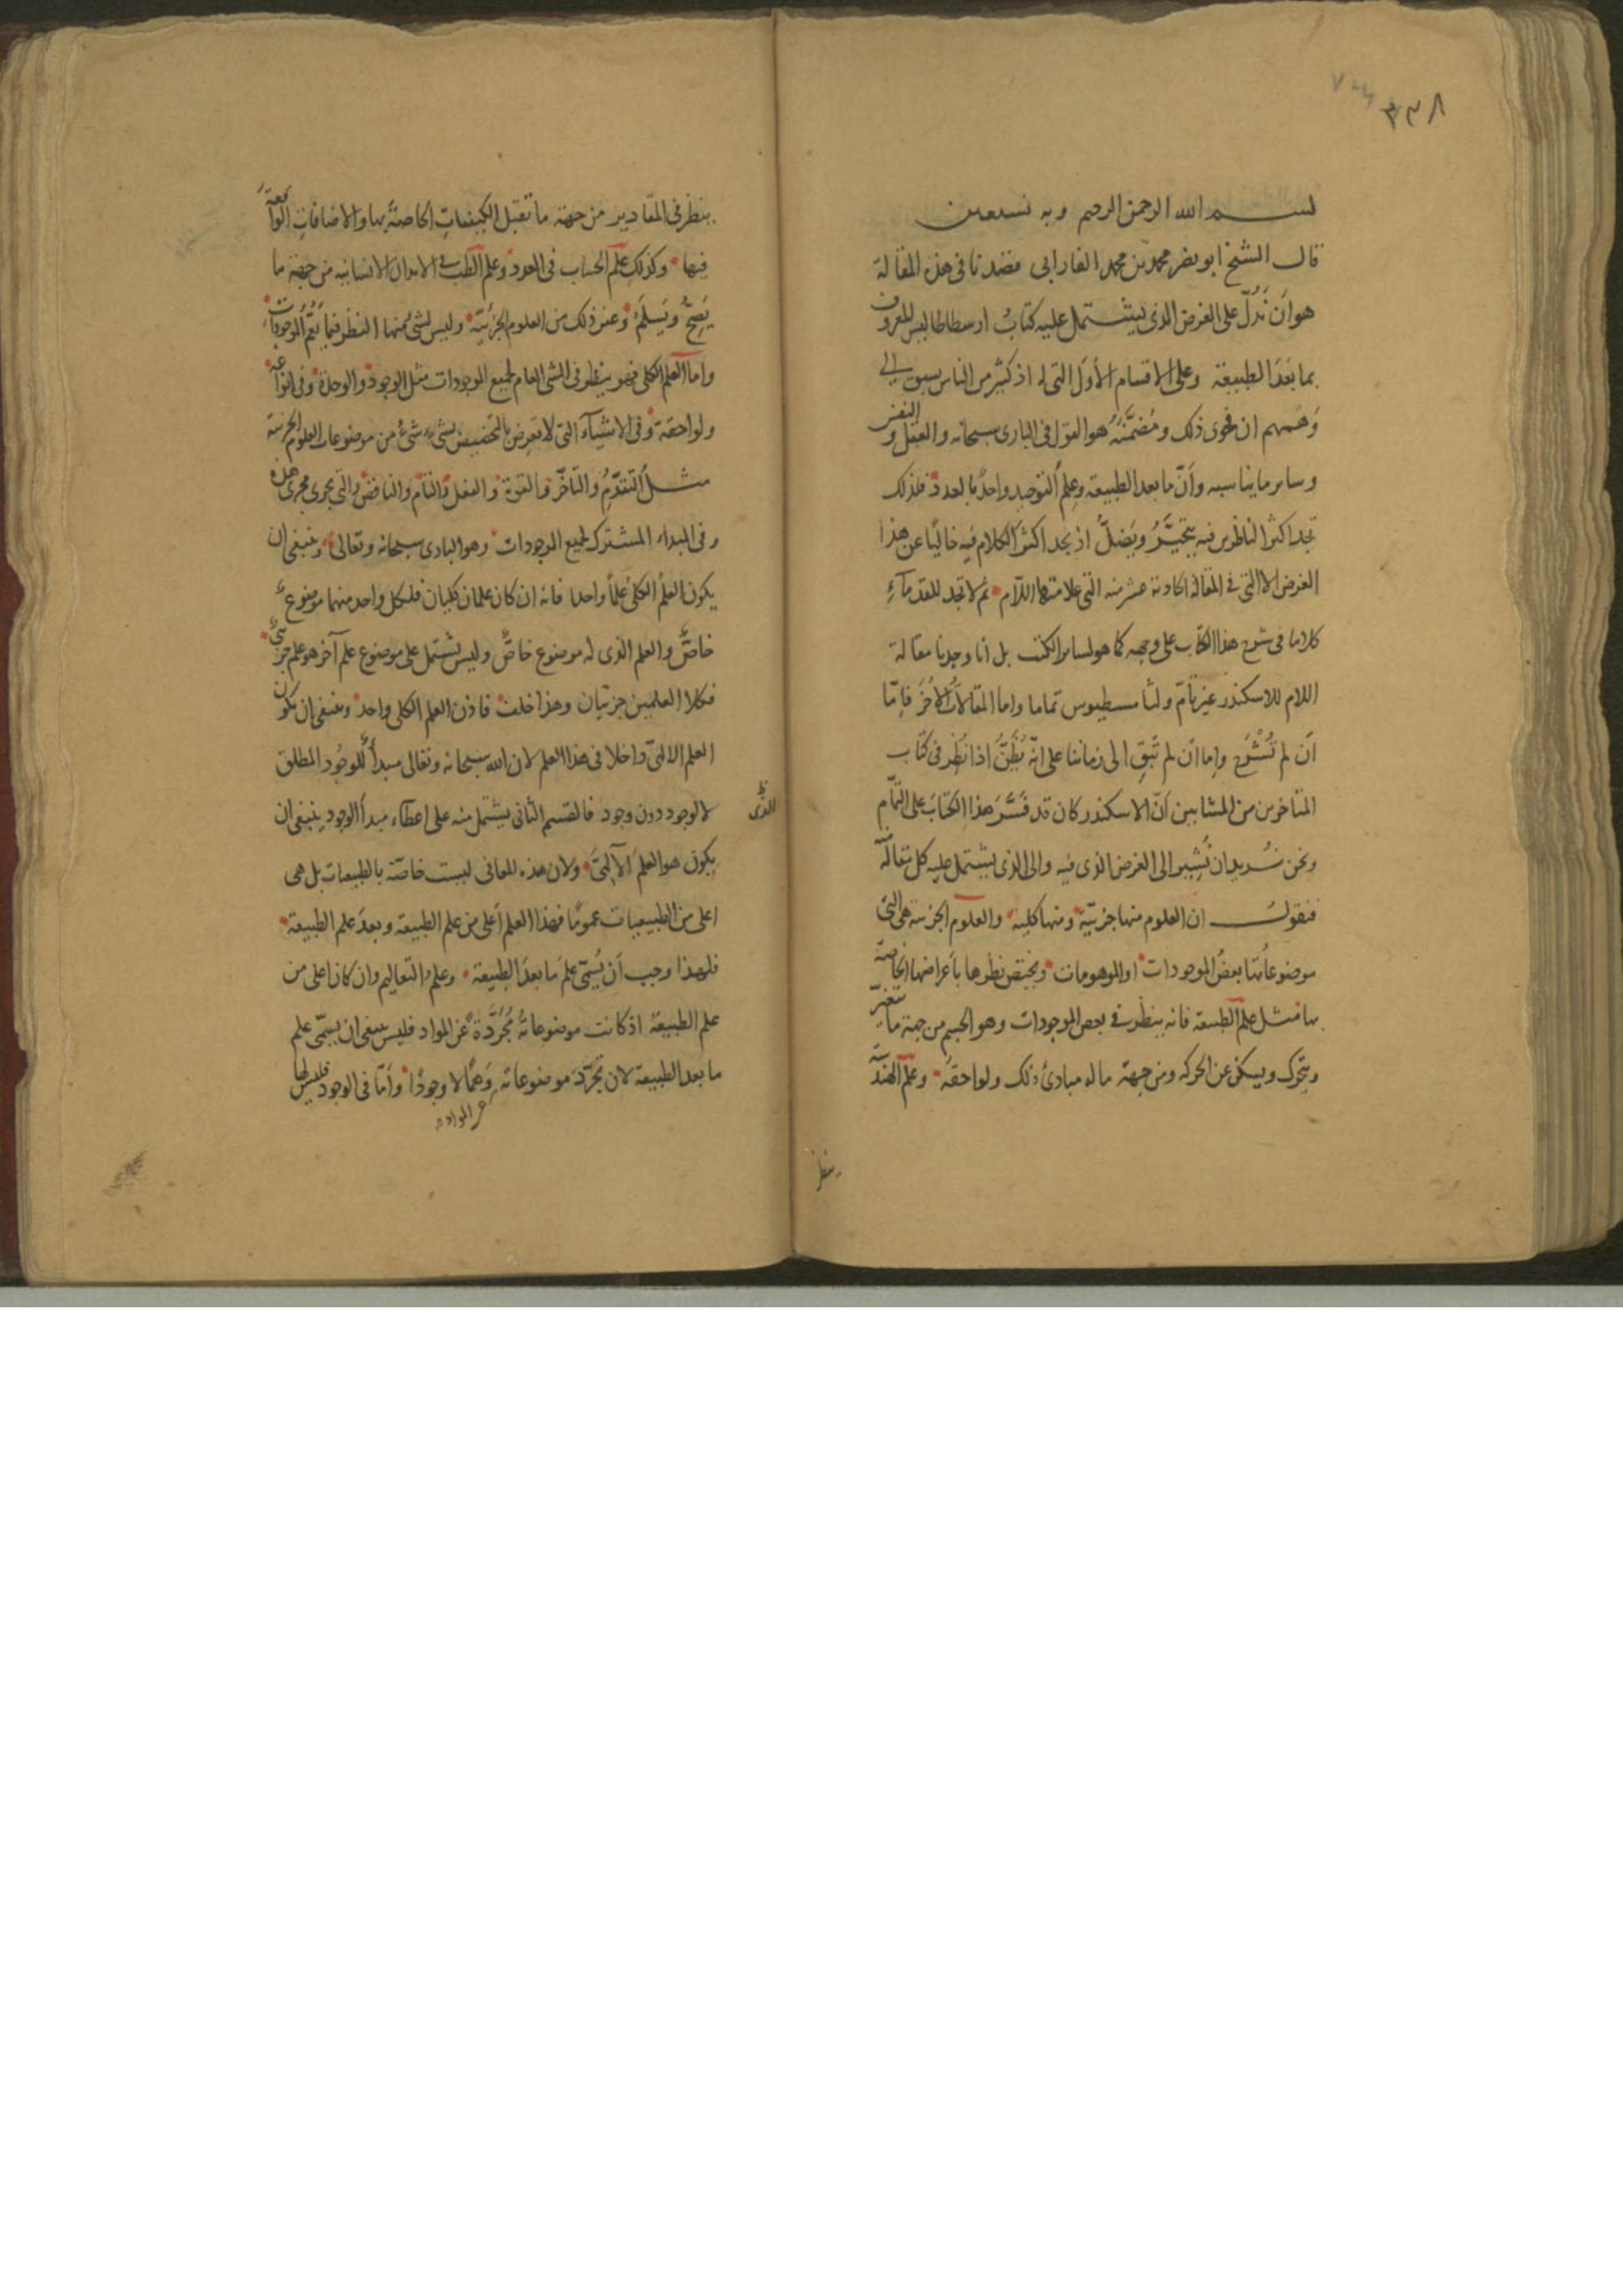 ٣٣٨
بسم الله الرحمن الرحيم وبه نستعين
قال الشيخ ابو نصر محمد بن محمد الفارابى قصدنا فى هذه المقالة
هو اَن نَدُلّ على الغرض الذى يشتمل عليه كتابُ ارسطاطاليس المعروف
بما بَعْدَ الطبيعة وعلى الاقسام الاُوَل التى له اذ كثير من الناس سبق الى
وَهْمهم ان فحوى ذلك ومُضَمَّنَهُ هو القول فى البارى سبحانه والعقل والنفس
وساير ما يناسبه وأنّ ما بعد الطبيعة وعِلمَ التوحيد واحدٌ بالعدد فلذلك
تجد اكثر الناظرين فيه يتحيَّرُ ويَضلُّ اذ يجد اكثرَ الكلام فيه خاليًا عن هذا
الغرض الا التى فى المقالة الحادية عشر منه التى علامتها اللّام ثم لا تجد للقدمآءِ
كلاما فى شرح هذا الكتاب على وجهه كما هو لساير الكتب بل انا وجدنا مقالة
اللام للاسكندر غير تامّ ولثامسطيوس تماما واما المقالاتُ الاُخَرُ فاِمّا
اَن لم تُشْرَح واِما اَن لم تَبْقِ الى زماننا على انّه يُظَنُّ اذا نُظِر فى كتاب
المتأخرين من المشايين اَنّ الاسكندر كان قد فَسَّرَ هذا الكتابَ على التّمام
ونحن نُريد ان نُشِير الى الغرض الذى فيه والى الذى يشتمل عليه كل مقالة
فنقولُ ان العلوم منها جزئيّة ومنها كلية والعلوم الجزئية هى التى
موضوعاتها بعضُ الموجودات او الموهومات ويختص نظرها باَعراضها الخاصّة
بها مثل علم الطبيعة فانه ينظر فى بعض الموجودات وهو الجسم من جهة ما يتغيّر
ويتحرك ويسكن عن الحركة ومن جهة ما له مبادئ ذلك ولواحقه وعلم الهندسة
ينظر
ينظر فى المقادير من جهة ما تقبل الكيفياتِ الخاصةَ بها والاضافاتِ الواقعةَ
فيها وكذلك علم الحساب فى العدد وعلم الطب فى الابدان الانسانيه من جهة ما
يَصِحُّ ويَسلَم وغير ذلك من العلوم الجزئيّة وليس لشئ منها النظر فيما يَعُمُّ الموجودات
واما العلم الكلى فهو ينظر فى الشئ العام لجميع الموجودات مثل الوجود والوحدة وفى انواعه
ولواحقه وفى الاشيآء التى لا تعرِض بالتخصيص لشئٍ شئٍ من موضوعات العلوم الجزئية
مثل التقدّمِ والتأخّر والقوة والفعل والتّام والناقص والتى تجرى مجرى هذه
وفى المبداء المشترك لجميع الموجودات وهو البارى سبحانه وتعالى وينبغى ان
يكون العلمُ الكلىّ علماً واحدا فانه ان كان علمان كليان فلكل واحد منهما موضوعٌ
خاصٌّ والعلم الذى له موضوع خاصٌّ وليس يشتمل على موضوع علمٍ آخر هو علم جزئىٌّ
فكلا العلمين جزئيان وهذا خلف فاذن العلم الكلى واحد وينبغى ان يكون
العلم الالهىّ داخلا فى هذا العلم لان الله سبحانه وتعالى مبدأٌ للوجُود المطلق
لا لوجود دون وجود فالقسم الثانى يشتمل منه على اعطآء مبدأ الوجود ينبغى ان
الذى
يكون هو العلمَ الآلهىَّ ولان هذه المعانى ليست خاصّة بالطبيعيات بل هى
اعلى من الطبيعيات عمومًا فهذا العلم اَعلى من علم الطبيعة وبعدَ علم الطبيعة
فلهذا وجب اَن يُسمّى علمَ ما بعدَ الطبيعة وعلم التعاليم وان كان اعلى من
علم الطبيعة اذ كانت موضوعاتهُ مُجَرَّدةً عَن المواد فليس ينبغى ان يسمّى علم
ما بعد الطبيعة لان تَجَرّدَ موضوعاته وَهْمًا لا وجودًا واَمّا فى الوجود فليس لها
عن المواد